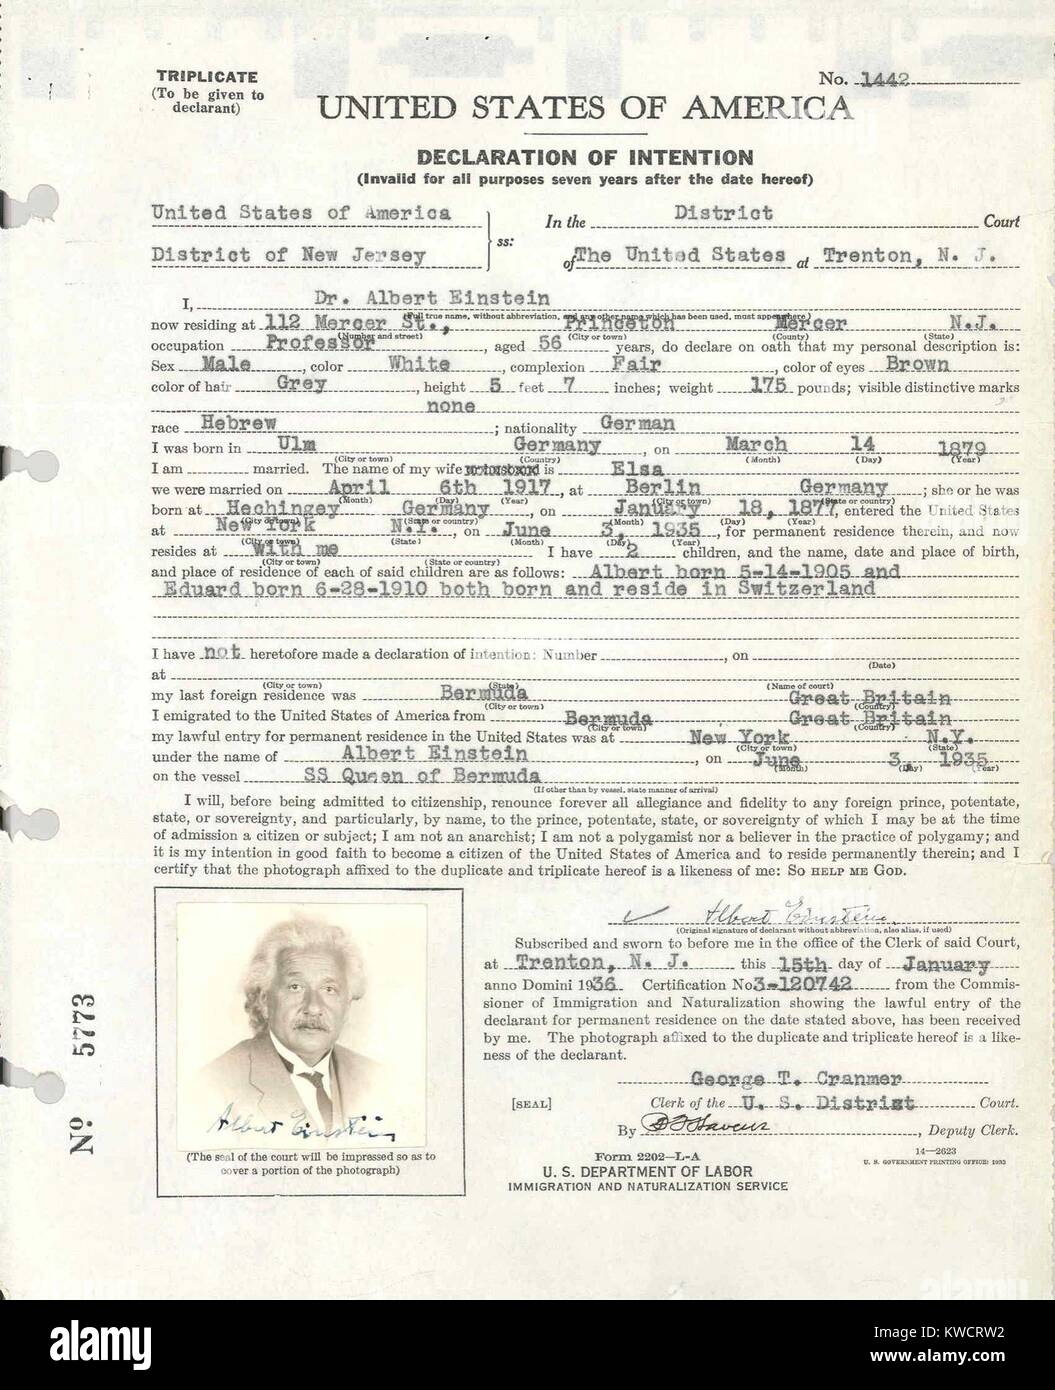 TRIPLICATE
(To be given to
declarant)
No. 1442
UNITED STATES OF AMERICA
DECLARATION OF INTENTION
(Invalid for all purposes seven years after the date hereof)
United States of America
District of New Jersey
ss:
In the District Court
of The United States at Trenton, N. J.
I, Dr. Albert Einstein
(Full true name, without abbreviation, and any other name which has been used, must appear here)
now residing at 112 Mercer St., Princeton Mercer N.J.
(Number and street) (City or town) (County) (State)
occupation Professor, aged 56 years, do declare on oath that my personal description is:
Sex Male, color White, complexion Fair, color of eyes Brown
color of hair Grey, height 5 feet 7 inches; weight 175 pounds; visible distinctive marks
none
race Hebrew; nationality German
I was born in Ulm Germany, on March 14 1879
(City or town) (Country) (Month) (Day) (Year)
I am married. The name of my wife is Elsa
we were married on April 6th 1917, at Berlin Germany; she or he was
(Month) (Day) (Year) (City or town) (State or country)
born at Hechingey Germany, on January 18, 1877, entered the United States
(City or town) (State or country) (Month) (Day) (Year)
at New York N.Y., on June 3, 1935, for permanent residence therein, and now
(City or town) (State) (Month) (Day) (Year)
resides at with me I have 2 children, and the name, date and place of birth,
(City or town) (State or country)
and place of residence of each of said children are as follows: Albert born 5-14-1905 and
Eduard born 6-28-1910 both born and reside in Switzerland
I have not heretofore made a declaration of intention: Number, on
(Date)
at
(City or town) (State) (Name of court)
my last foreign residence was Bermuda Great Britain
(City or town) (Country)
I emigrated to the United States of America from Bermuda Great Britain
(City or town) (Country)
my lawful entry for permanent residence in the United States was at New York N.Y.
(City or town) (State)
under the name of Albert Einstein, on June 3, 1935
(Month) (Day) (Year)
on the vessel SS Queen of Bermuda
(If other than by vessel, state manner of arrival)
I will, before being admitted to citizenship, renounce forever all allegiance and fidelity to any foreign prince, potentate,
state, or sovereignty, and particularly, by name, to the prince, potentate, state, or sovereignty of which I may be at the time
of admission a citizen or subject; I am not an anarchist; I am not a polygamist nor a believer in the practice of polygamy; and
it is my intention in good faith to become a citizen of the United States of America and to reside permanently therein; and I
certify that the photograph affixed to the duplicate and triplicate hereof is a likeness of me: SO HELP ME GOD.
Albert Einstein.
(Original signature of declarant without abbreviation, also alias, if used)
Subscribed and sworn to before me in the office of the Clerk of said Court,
at Trenton, N. J. this 15th day of January
anno Domini 1936 Certification No 3-120742 from the Commis-
sioner of Immigration and Naturalization showing the lawful entry of the
declarant for permanent residence on the date stated above, has been received
by me. The photograph affixed to the duplicate and triplicate hereof is a like-
ness of the declarant.
George T. Cranmer
[SEAL] Clerk of the U. S. District Court.
By, Deputy Clerk.
Albert Einstein
(The seal of the court will be impressed so as to
cover a portion of the photograph)
Form 2202-L-A
U. S. DEPARTMENT OF LABOR
IMMIGRATION AND NATURALIZATION SERVICE
14-2623
U. S. GOVERNMENT PRINTING OFFICE: 1933
No 5773
alamy
Image ID: KWCRW2
www.alamy.com